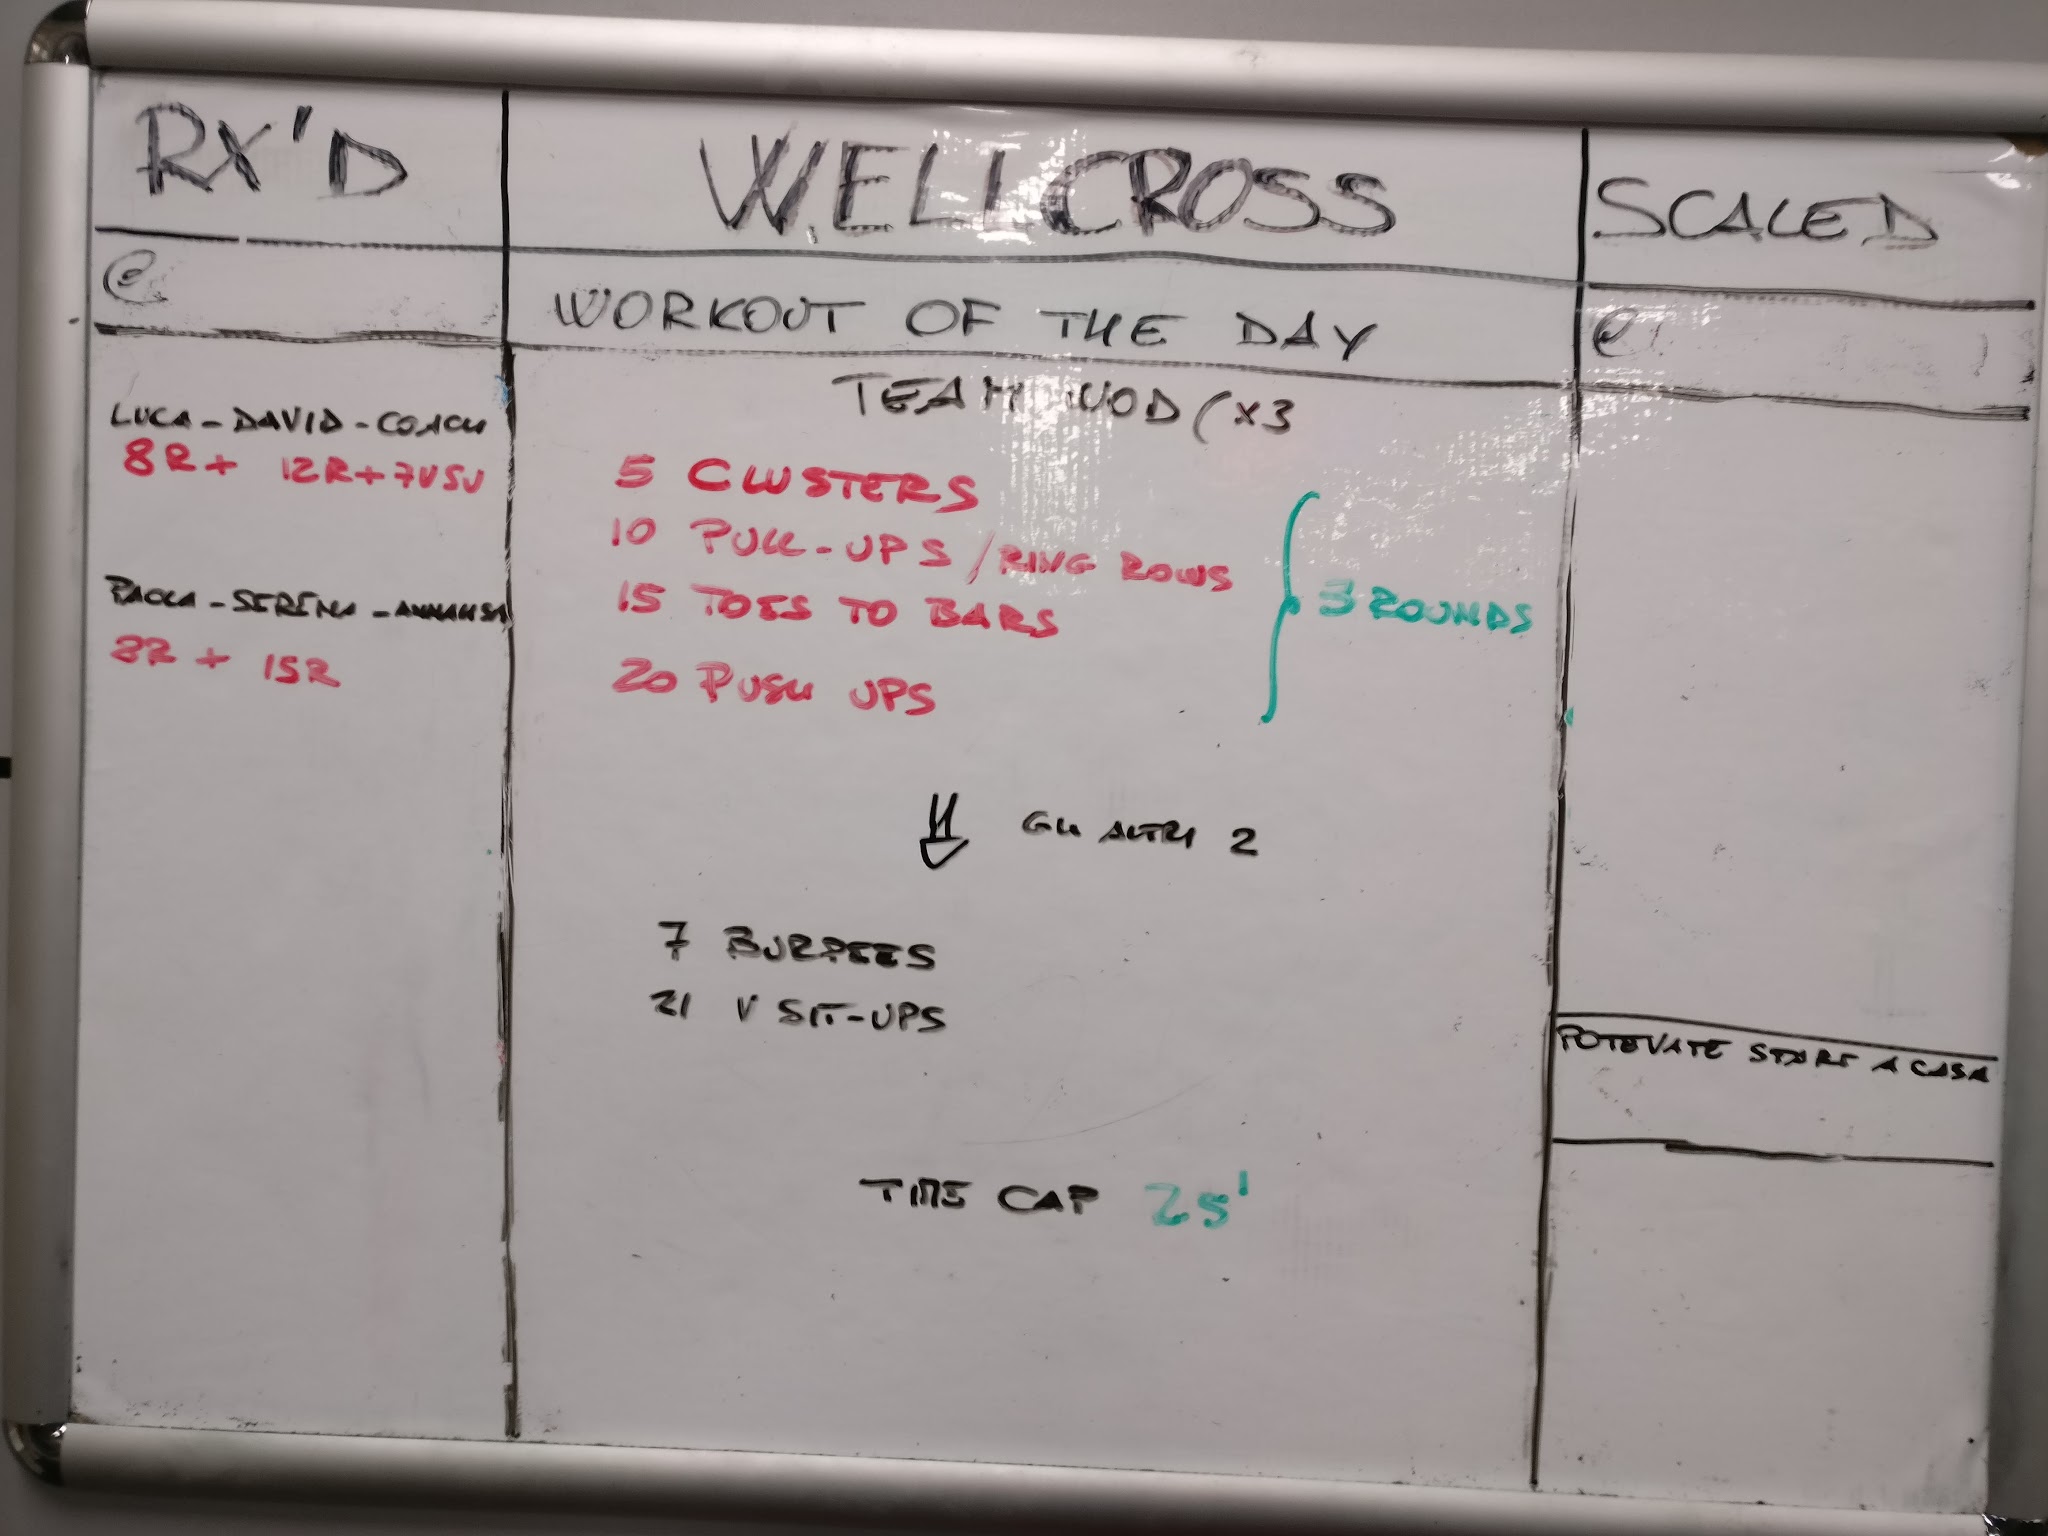 RX'D
WELLCROSS
SCALED
@
WORKOUT OF THE DAY
@
TEAM WOD (x3
LUCA - DAVID - COACH
8R + 12R + 7VSU
PAOLA - SERENA - ANNALISA
8R + 15R
5 CLUSTERS
10 PULL-UPS / RING ROWS
15 TOES TO BARS
20 PUSH UPS
3 ROUNDS
GLI ALTRI 2
7 BURPEES
21 V SIT-UPS
TIME CAP 25'
POTEVATE STARE A CASA